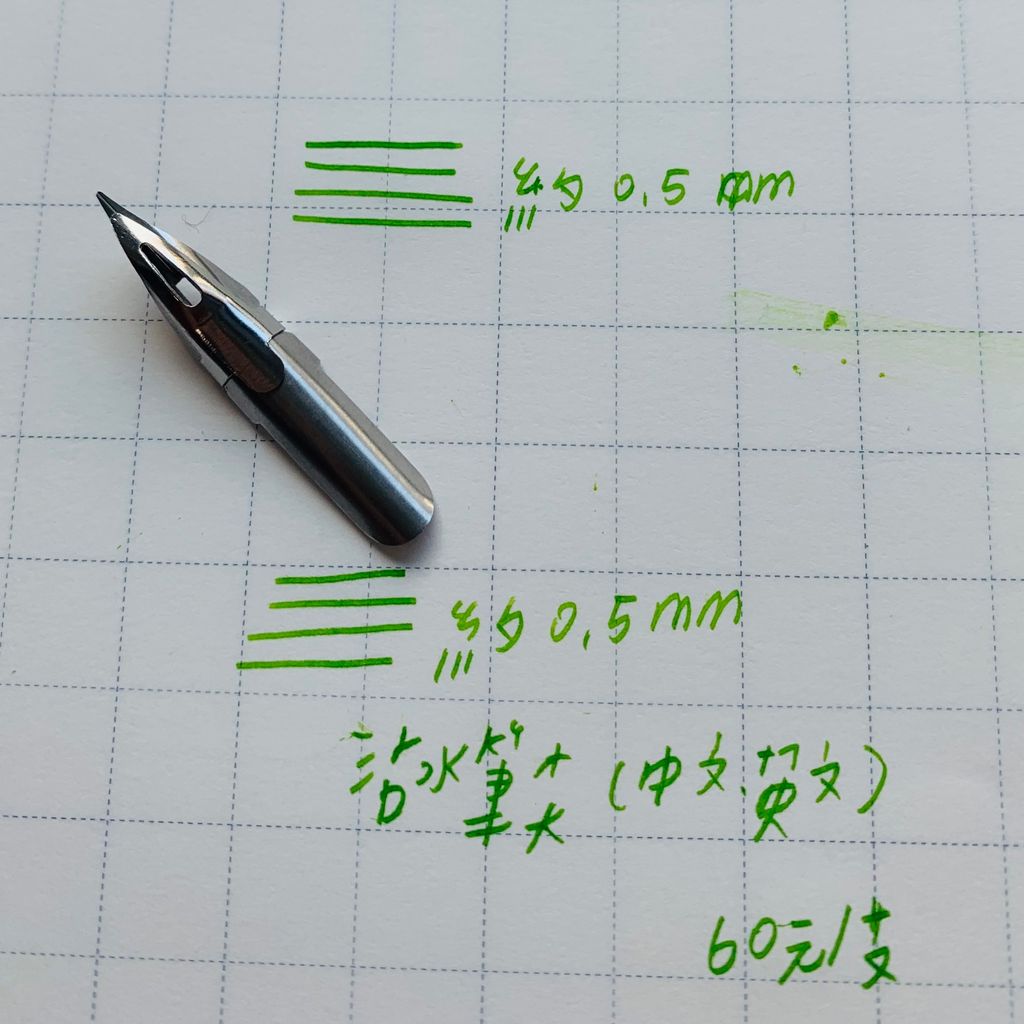 約 0.5 mm
約 0.5 mm
沾水筆尖 (中文.英文)
60元/支